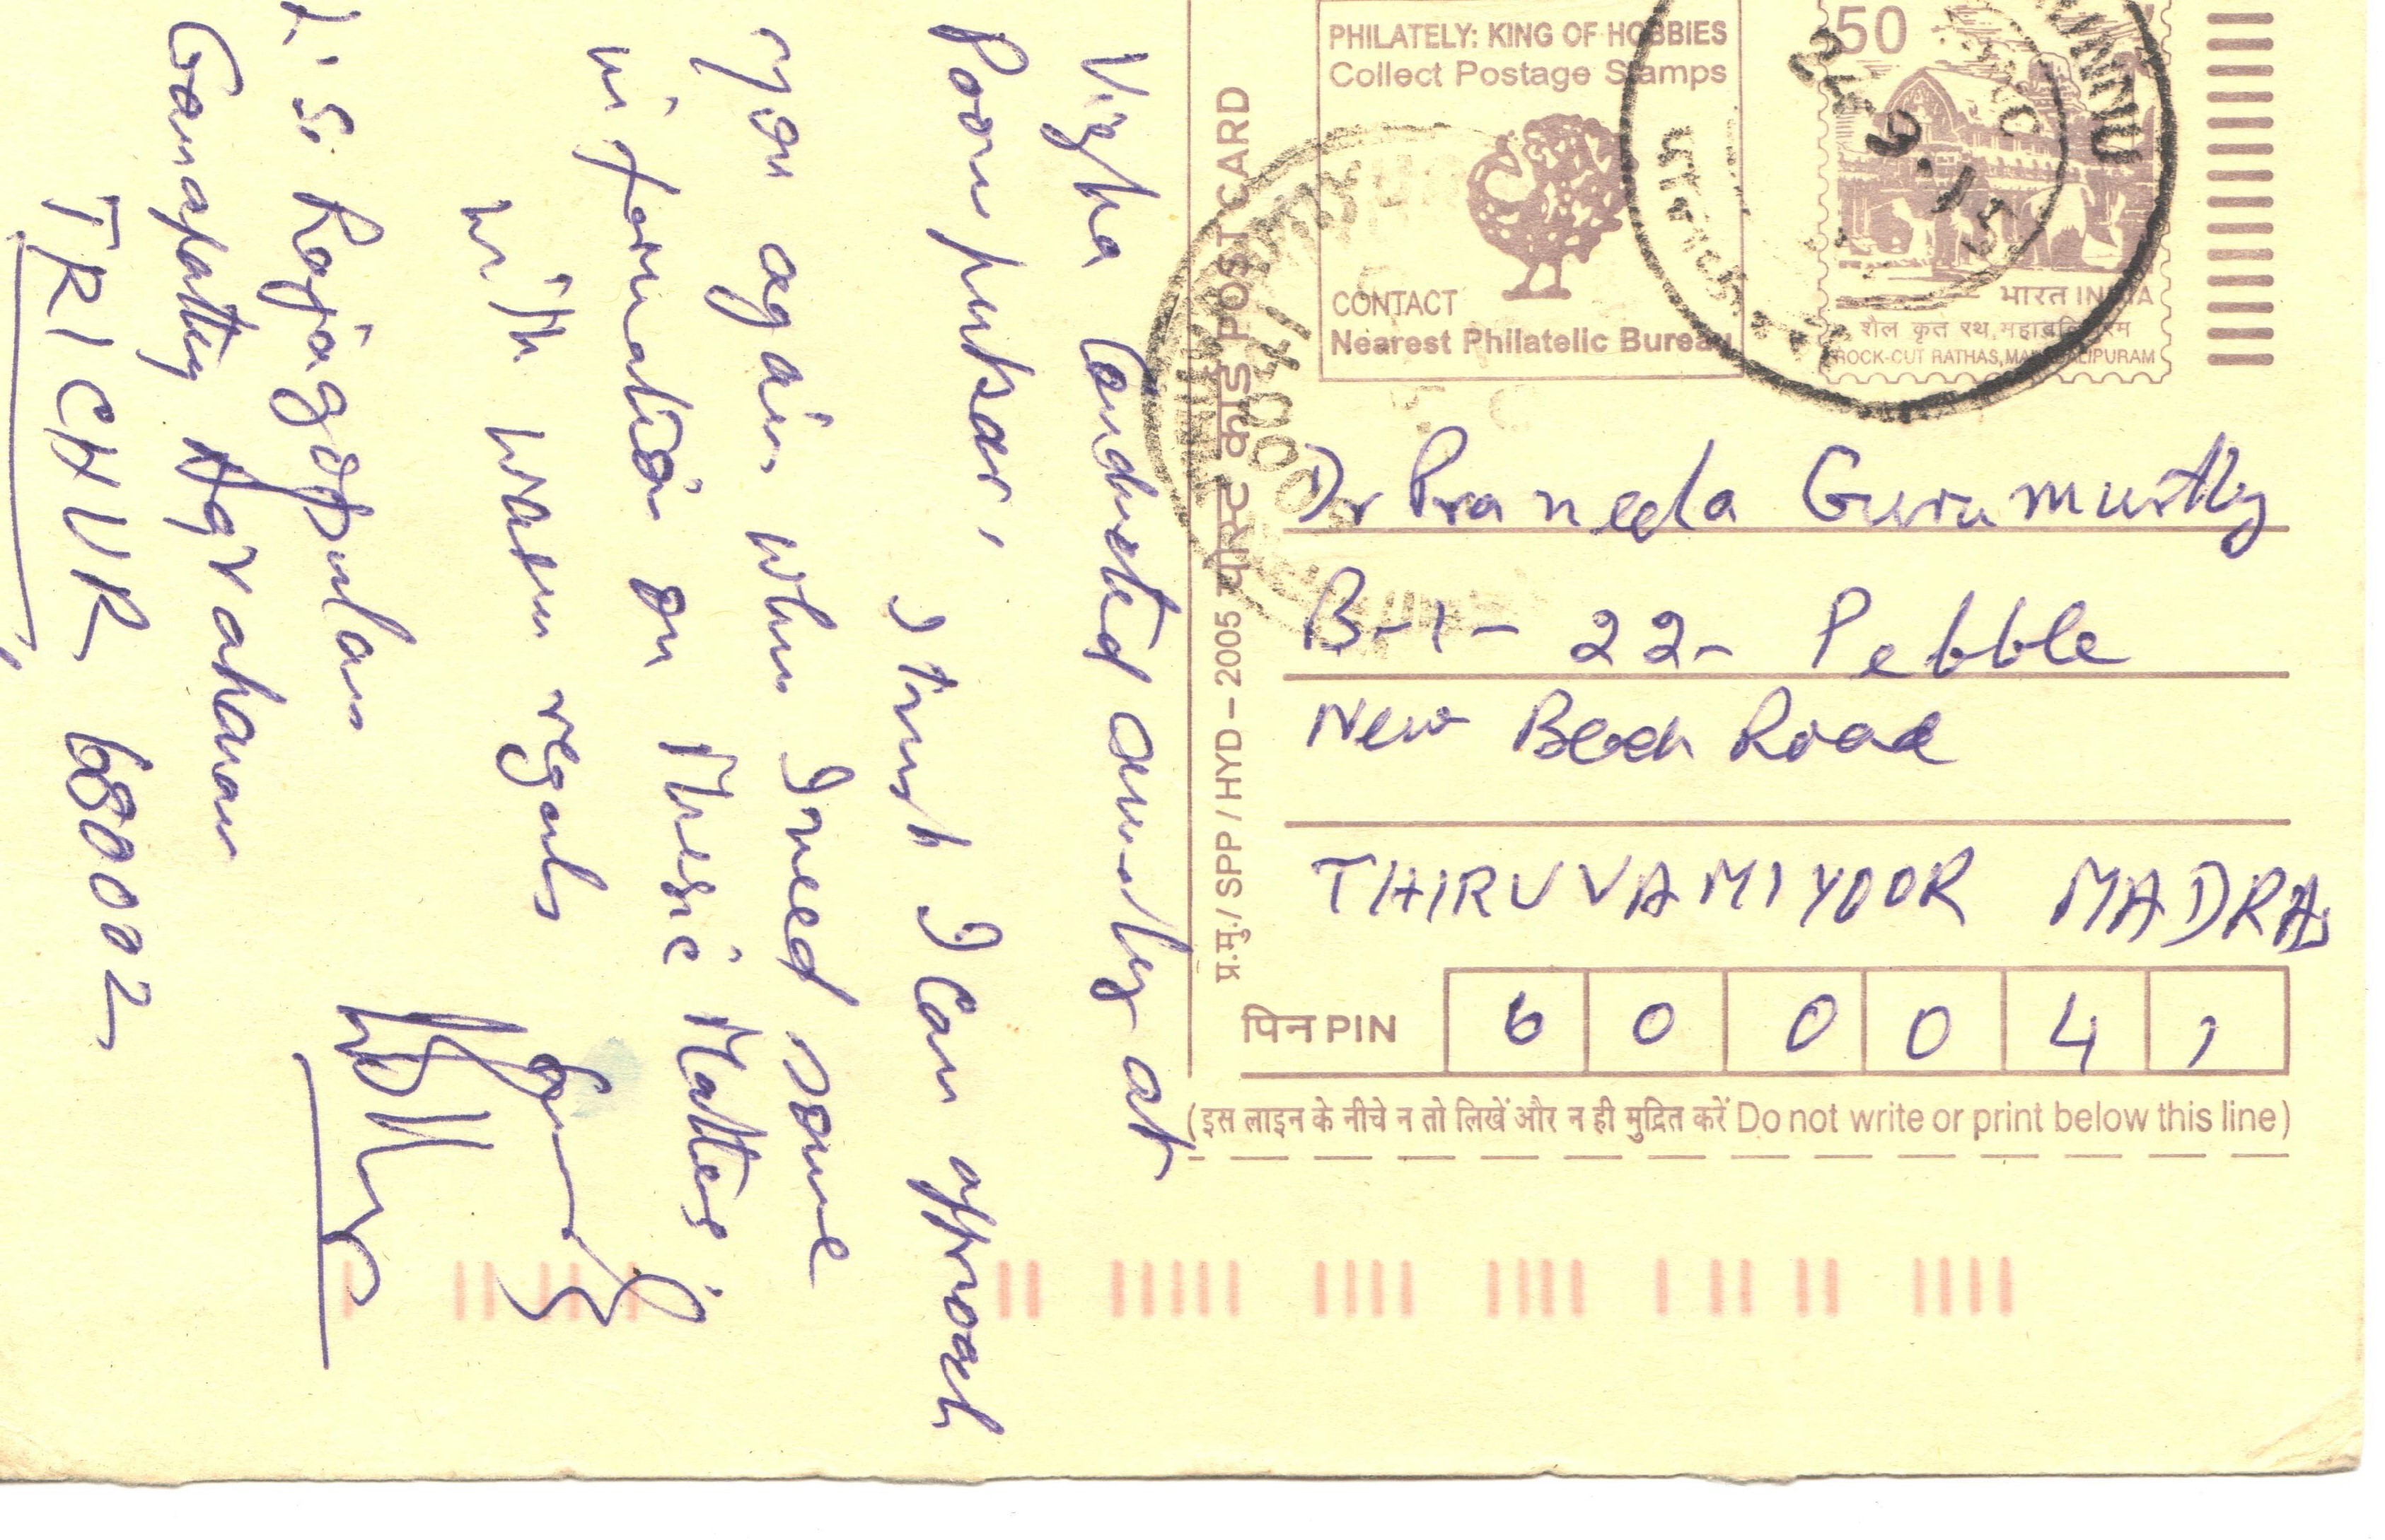 Vigha Conducted annually at
Poompuhar,
I trust I Can approach
you again when I need some
information on Music Matters
with warm regards
L. S. Rajagopalan
Ganapathy Agraharam
TRICHUR 680002
पोस्ट कार्ड POST CARD
प्र.मु./ SPP / HYD – 2005
PHILATELY: KING OF HOBBIES
Collect Postage Stamps
CONTACT
Nearest Philatelic Bureau
50
भारत INDIA
शैल कृत रथ, महाबलिपुरम
ROCK-CUT RATHAS, MAHABALIPURAM
24 9.15
Dr Praneela Gurumurthy
B-1- 22- Pebble
New Beach Road
THIRUVAMIYOOR MADRAS
पिन PIN 6 0 0 0 4 1
(इस लाइन के नीचे न तो लिखें और न ही मुद्रित करें Do not write or print below this line)